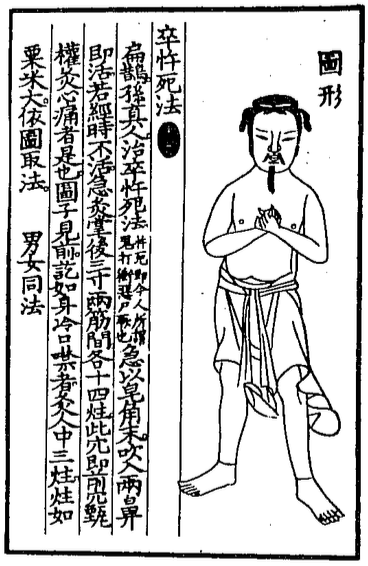 圖形
卒忤死法
扁鵲孫真人治卒忤死法忤死即今人所謂鬼打衝惡尸厥也急以皂角末吹入兩鼻
即活若經時不活急灸掌後三寸兩筋間各十四炷此穴即前穴甄
權灸心痛者是也圖子見前訖如身冷口噤者灸人中三炷炷如
粟米大依圖取法。 男女同法